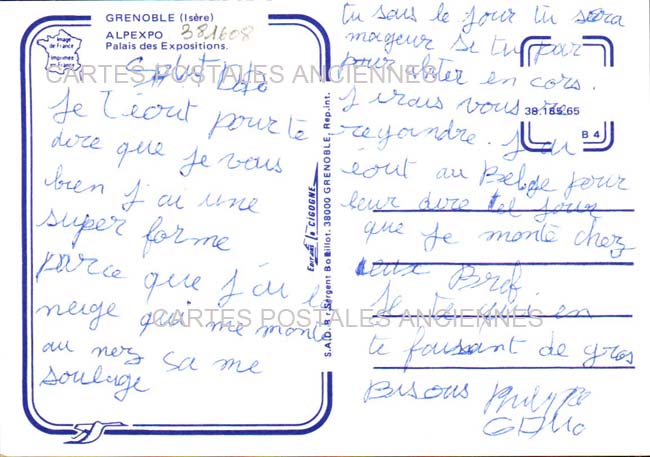 GRENOBLE (Isère)
ALPEXPO
381608
Palais des Expositions.
Image de France
Imprimée en France
CARTES POSTALES ANCIENNES
Salut
Je t'ecrit pour te
dire que je vais
bien j'ai une
super forme
parce que j'ai la
neige qui me monte
au nez sa me
soulage
Editions la CIGOGNE
S.A.D. 8 r. Sergent Bobillot. 38000 GRENOBLE, Rep. int.
38.185.65
B 4
tu sais le jour tu sera
mageur si tu par
pour en cors.
J'irais vous re
rejoindre. J'ai
écrit au Belge pour
leur dire le jour
que je monte chez
eux Bref.
Je te quit en
te faisant de gros
Bisous Philippe
CARTES POSTALES ANCIENNES